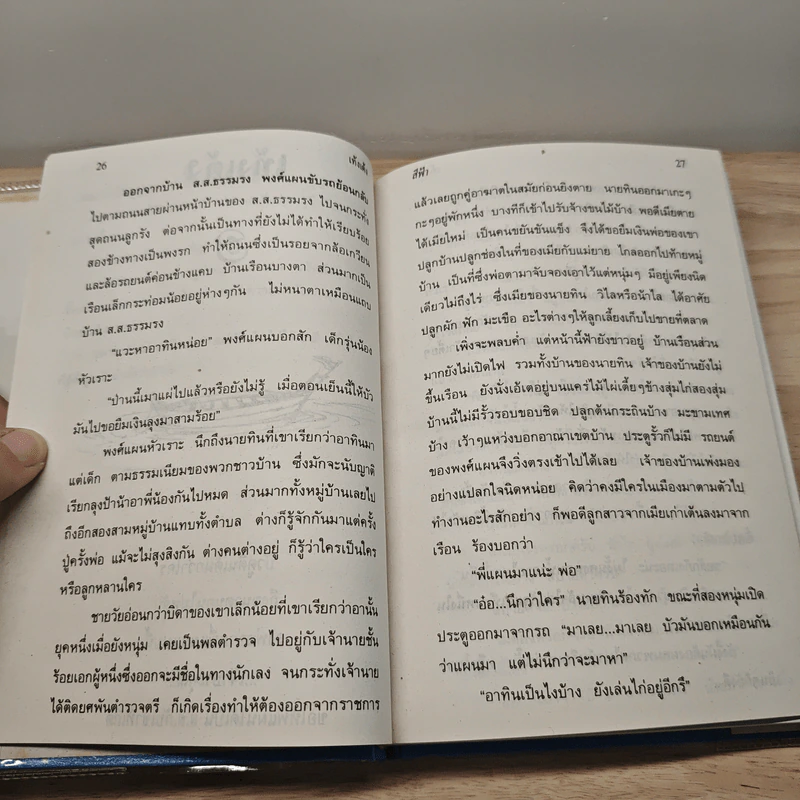 26
เพ้งเค้ง
ออกจากบ้าน ส.ส.ธรรมรง พงศ์แผนขับรถย้อนกลับ
ไปตามถนนสายผ่านหน้าบ้านของ ส.ส.ธรรมรง ไปจนกระทั่ง
สุดถนนลูกรัง ต่อจากนั้นเป็นทางที่ยังไม่ได้ทำให้เรียบร้อย
สองข้างทางเป็นพงรก ทำให้ถนนซึ่งเป็นรอยจากล้อเกวียน
และล้อรถยนต์ค่อนข้างแคบ บ้านเรือนบางตา ส่วนมากเป็น
เรือนเล็กกระท่อมน้อยอยู่ห่างๆกัน ไม่หนาตาเหมือนแถบ
บ้าน ส.ส.ธรรมรง
“แวะหาอาทินหน่อย” พงศ์แผนบอกสัก เด็กรุ่นน้อง
หัวเราะ
“ป่านนี้เมาแผ่ไปแล้วหรือยังไม่รู้ เมื่อตอนเย็นนี้ให้บัว
มันไปขอยืมเงินลุงมาสามร้อย”
พงศ์แผนหัวเราะ นึกถึงนายทินที่เขาเรียกว่าอาทินมา
แต่เด็ก ตามธรรมเนียมของพวกชาวบ้าน ซึ่งมักจะนับญาติ
เรียกลุงป้าน้าอาพี่น้องกันไปหมด ส่วนมากทั้งหมู่บ้านเลยไป
ถึงอีกสองสามหมู่บ้านแทบทั้งตำบล ต่างก็รู้จักกันมาแต่ครั้ง
ปู่ครั้งพ่อ แม้จะไม่สุงสิงกัน ต่างคนต่างอยู่ ก็รู้ว่าใครเป็นใคร
หรือลูกหลานใคร
ชายวัยอ่อนกว่าบิดาของเขาเล็กน้อยที่เขาเรียกว่าอานั้น
ยุคหนึ่งเมื่อยังหนุ่ม เคยเป็นพลตำรวจ ไปอยู่กับเจ้านายชั้น
ร้อยเอกผู้หนึ่งซึ่งออกจะมีชื่อในทางนักเลง จนกระทั่งเจ้านาย
ได้ติดยศพันตำรวจตรี ก็เกิดเรื่องทำให้ต้องออกจากราชการ
สีฟ้า
27
แล้วเลยถูกคู่อาฆาตในสมัยก่อนยิงตาย นายทินออกมาเกะๆ
กะๆอยู่พักหนึ่ง บางทีก็เข้าไปรับจ้างขนไม้บ้าง พอดีเมียตาย
ได้เมียใหม่ เป็นคนขยันขันแข็ง จึงได้ขอยืมเงินพ่อของเขา
ปลูกบ้านปลูกช่องในที่ของเมียกับแม่ยาย ไกลออกไปท้ายหมู่
บ้าน เป็นที่ซึ่งพ่อตามาจับจองเอาไว้แต่หนุ่มๆ มีอยู่เพียงนิด
เดียวไม่ถึงไร่ ซึ่งเมียของนายทิน วิไลหรือน้าไล ได้อาศัย
ปลูกผัก ฟัก มะเขือ อะไรต่างๆให้ลูกเลี้ยงเก็บไปขายที่ตลาด
เพิ่งจะพลบค่ำ แต่หน้านี้ฟ้ายังขาวอยู่ บ้านเรือนส่วน
มากยังไม่เปิดไฟ รวมทั้งบ้านของนายทิน เจ้าของบ้านยังไม่
ขึ้นเรือน ยังนั่งเอ้เตอยู่บนแคร่ไม้ไผ่เตี้ยๆข้างสุ่มไก่สองสุ่ม
บ้านนี้ไม่มีรั้วรอบขอบชิด ปลูกต้นกระถินบ้าง มะขามเทศ
บ้าง เว้าๆแหว่งบอกอาณาเขตบ้าน ประตูรั้วก็ไม่มี รถยนต์
ของพงศ์แผนจึงวิ่งตรงเข้าไปได้เลย เจ้าของบ้านเพ่งมอง
อย่างแปลกใจนิดหน่อย คิดว่าคงมีใครในเมืองมาตามตัวไป
ทำงานอะไรสักอย่าง ก็พอดีลูกสาวจากเมียเก่าเดินลงมาจาก
เรือน ร้องบอกว่า
“พี่แผนมาแน่ะ พ่อ”
“อ๋อ...นึกว่าใคร” นายทินร้องทัก ขณะที่สองหนุ่มเปิด
ประตูออกมาจากรถ “มาเลย...มาเลย บัวมันบอกเหมือนกัน
ว่าแผนมา แต่ไม่นึกว่าจะมาหา”
“อาทินเป็นไงบ้าง ยังเล่นไก่อยู่อีกรึ”